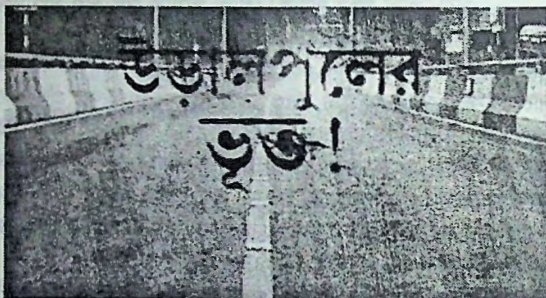 উড়ালপুলের
ভূত!